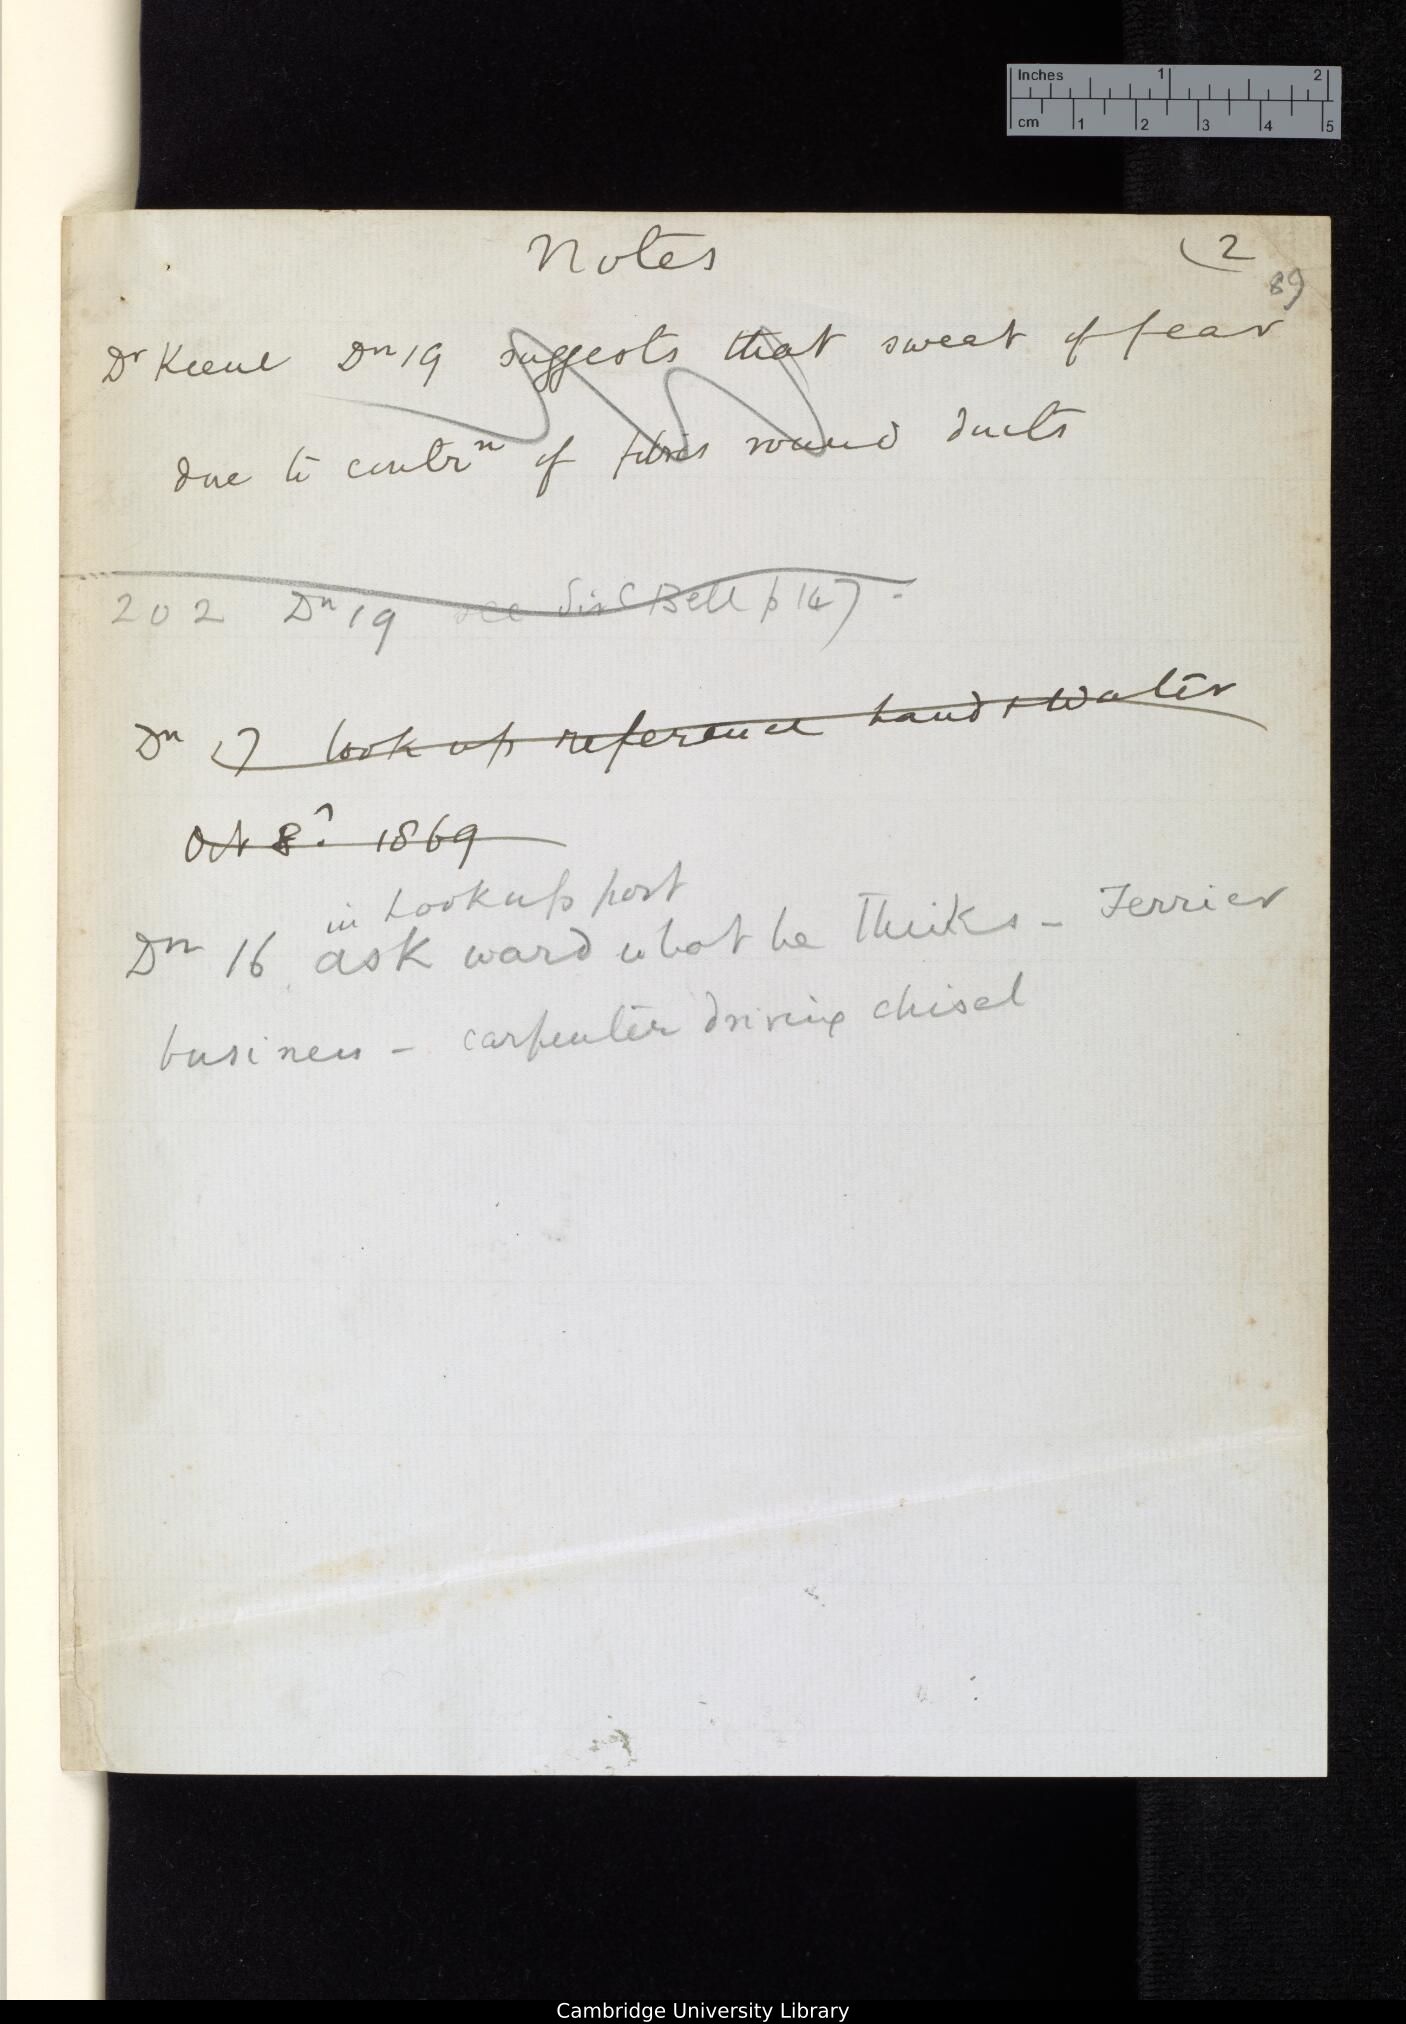 Inches 1 2
cm 1 2 3 4 5
Notes
(2
89
Dr Keene Dn 19 suggests that sweat of fear
due to contrn of fibres round ducts
202 Dn 19 see Sir C Bell p 147.
Dn 17 look up reference Land & Water
Oct 8? 1869
in Lookup post
Dn 16 ask ward what he thinks – Terrier
business – carpenter driving chisel
Cambridge University Library